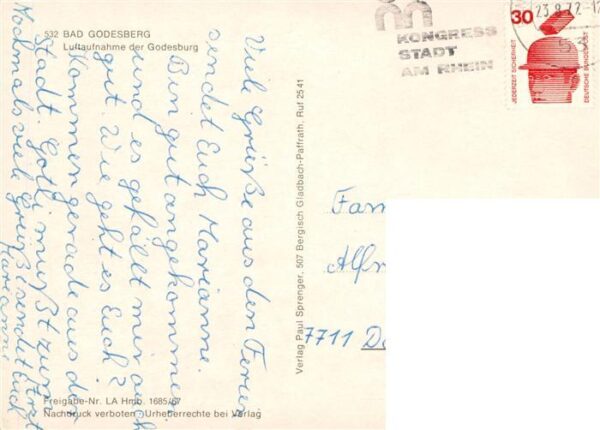 532 BAD GODESBERG
Luftaufnahme der Godesburg
Viele Grüße aus den Ferien
sendet Euch Marianne.
Bin gut angekommen
und es gefällt mir auch
gut. Wie geht es Euch?
Kommen gerade aus der
Stadt. mußt zum Arzt
Nochmals viel Grüße sendet Euch
Marianne
Freigabe-Nr. LA Hmb. 1685/67
Nachdruck verboten - Urheberrechte bei Verlag
Verlag Paul Sprenger, 507 Bergisch Gladbach-Paffrath, Ruf 2541
KONGRESS
STADT
AM RHEIN
23.8.72
30
JEDERZEIT SICHERHEIT
DEUTSCHE BUNDESPOST
Fam
Alfr
7711 D